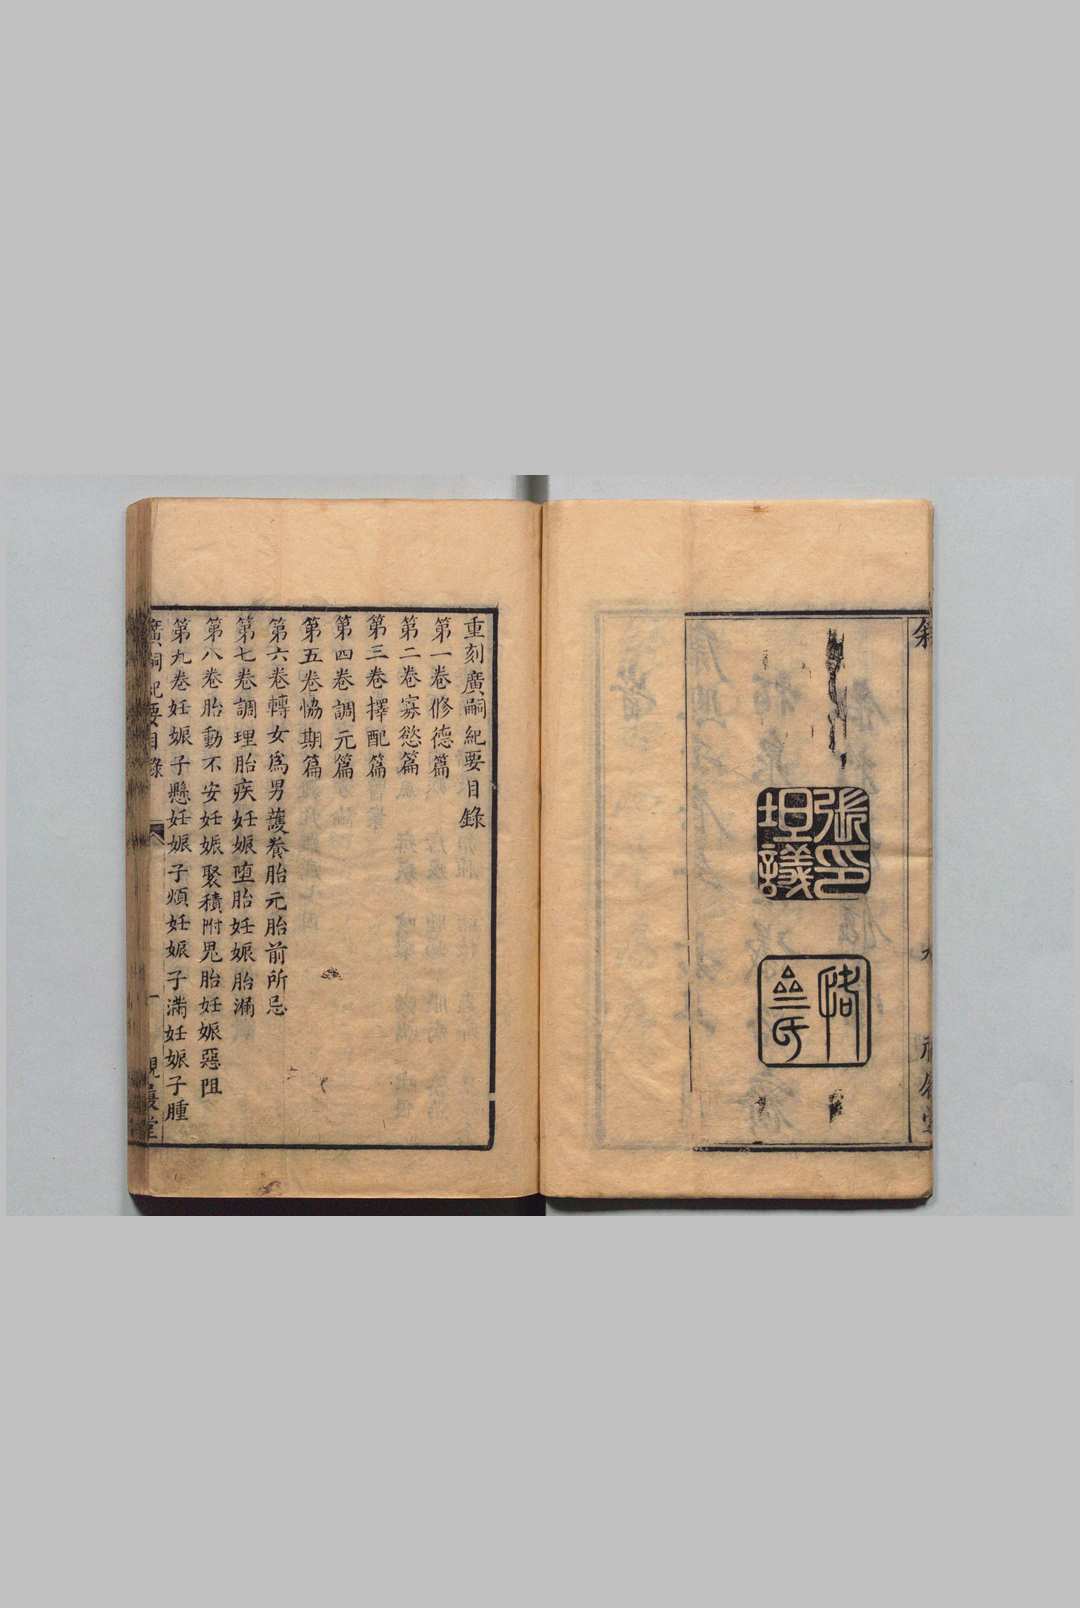 張印坦議
重刻廣嗣紀要目錄
第一卷修德篇
第二卷寡慾篇
第三卷擇配篇
第四卷調元篇
第五卷恊期篇
第六卷轉女爲男護養胎元胎前所忌
第七卷調理胎疾妊娠墮胎妊娠胎漏
第八卷胎動不安妊娠聚積附鬼胎妊娠惡阻
第九卷妊娠子懸妊娠子煩妊娠子滿妊娠子腫
廣嗣紀要目錄
一